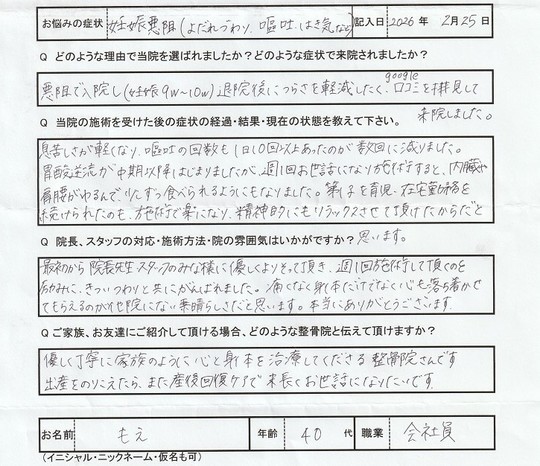 お悩みの症状 妊娠悪阻（よだれつわり、嘔吐、はき気など） 記入日 2026年 2月25日
Q どのような理由で当院を選ばれましたか？どのような症状で来院されましたか？
悪阻で入院し（妊娠9w〜10w）退院後につらさを軽減したく、google口コミを拝見して
来院しました。
Q 当院の施術を受けた後の症状の経過・結果・現在の状態を教えて下さい。
息苦しさが軽くなり、嘔吐の回数も1日10回以上あったのが数回に減りました。
胃酸逆流が中期以降はじまりましたが、週1回お世話になり施術すると、内臓や
肩腰がゆるんで、少しずつ食べられるようにもなりました。第1子を育児・在宅勤務を
続けられたのも、施術で楽になり、精神的にもリラックスさせて頂けたからだと
思います。
Q 院長、スタッフの対応・施術方法・院の雰囲気はいかがですか？
最初から院長先生、スタッフのみな様に優しくよりそって頂き、週1回施術して頂くのを
励みに、きついつわりと共にがんばれました。痛くなく身体だけでなく心も落ち着かせ
てもらえるのが他院にない素晴らしさだと思います。本当にありがとうございます。
Q ご家族、お友達にご紹介して頂ける場合、どのような整骨院と伝えて頂けますか？
優しく丁寧に家族のように心と身体を治療してくださる整骨院さんです
出産をのりこえたら、また産後回復ケアで末長くお世話になりたいです
お名前 もえ 年齢 40代 職業 会社員
（イニシャル・ニックネーム・仮名も可）